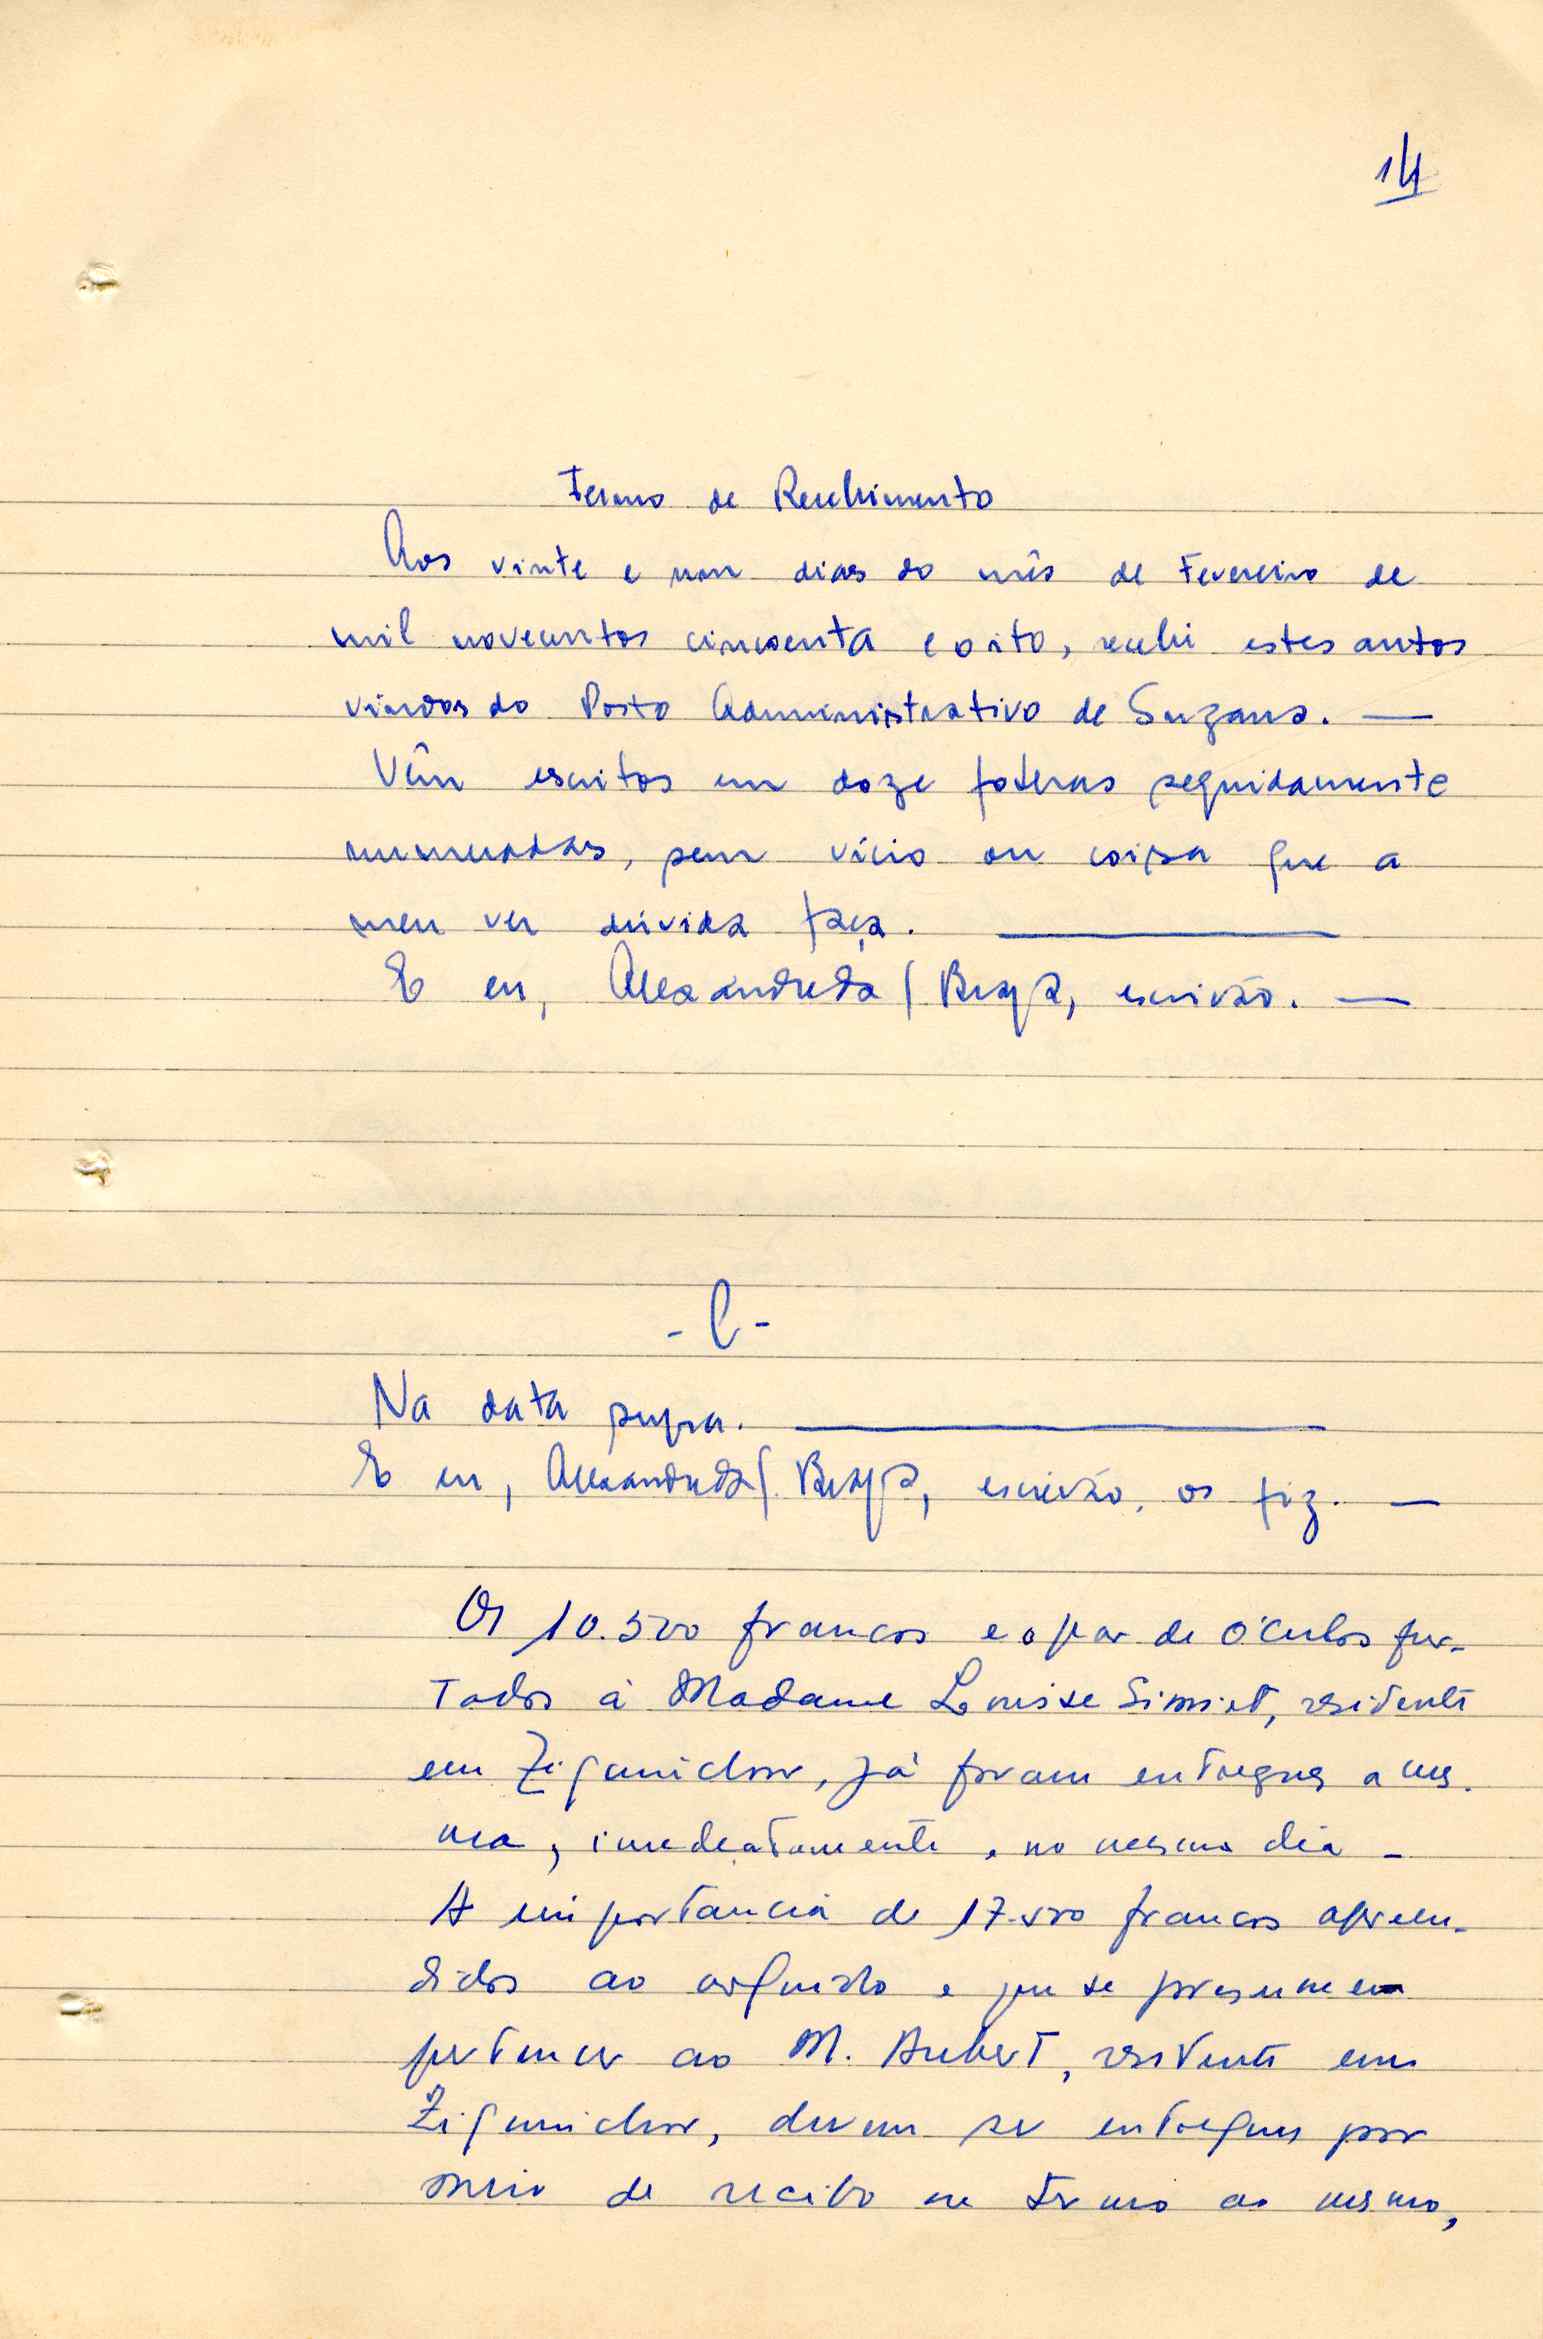 14
Termo de Recebimento
Aos vinte e um dias do mês de Fevereiro de
mil novecentos cincoenta e oito, recebi estes autos
vindos do Posto Administrativo de Suzana. —
Vêm escritos em doze
seguidamente
numeradas, sem vício ou coisa que a
meu ver dúvida faça. —
E eu, Alexandre da S. Braga, escrivão. —
- C -
Na data supra. —
E eu, Alexandre da S. Braga, escrivão, os fiz. —
Os 10.500 francos e o par de óculos fur-
tados à Madame Louise Simiet, residente
em Ziguinchor, já foram entregues a mes-
ma, imediatamente, no mesmo dia -
A importancia de 17.500 francos apreen-
didos ao arguido e que se presumem
pertencer ao M. Aubert, residente em
Ziguinchor, devem ser entregues por
meio de recibo ou termo ao mesmo,